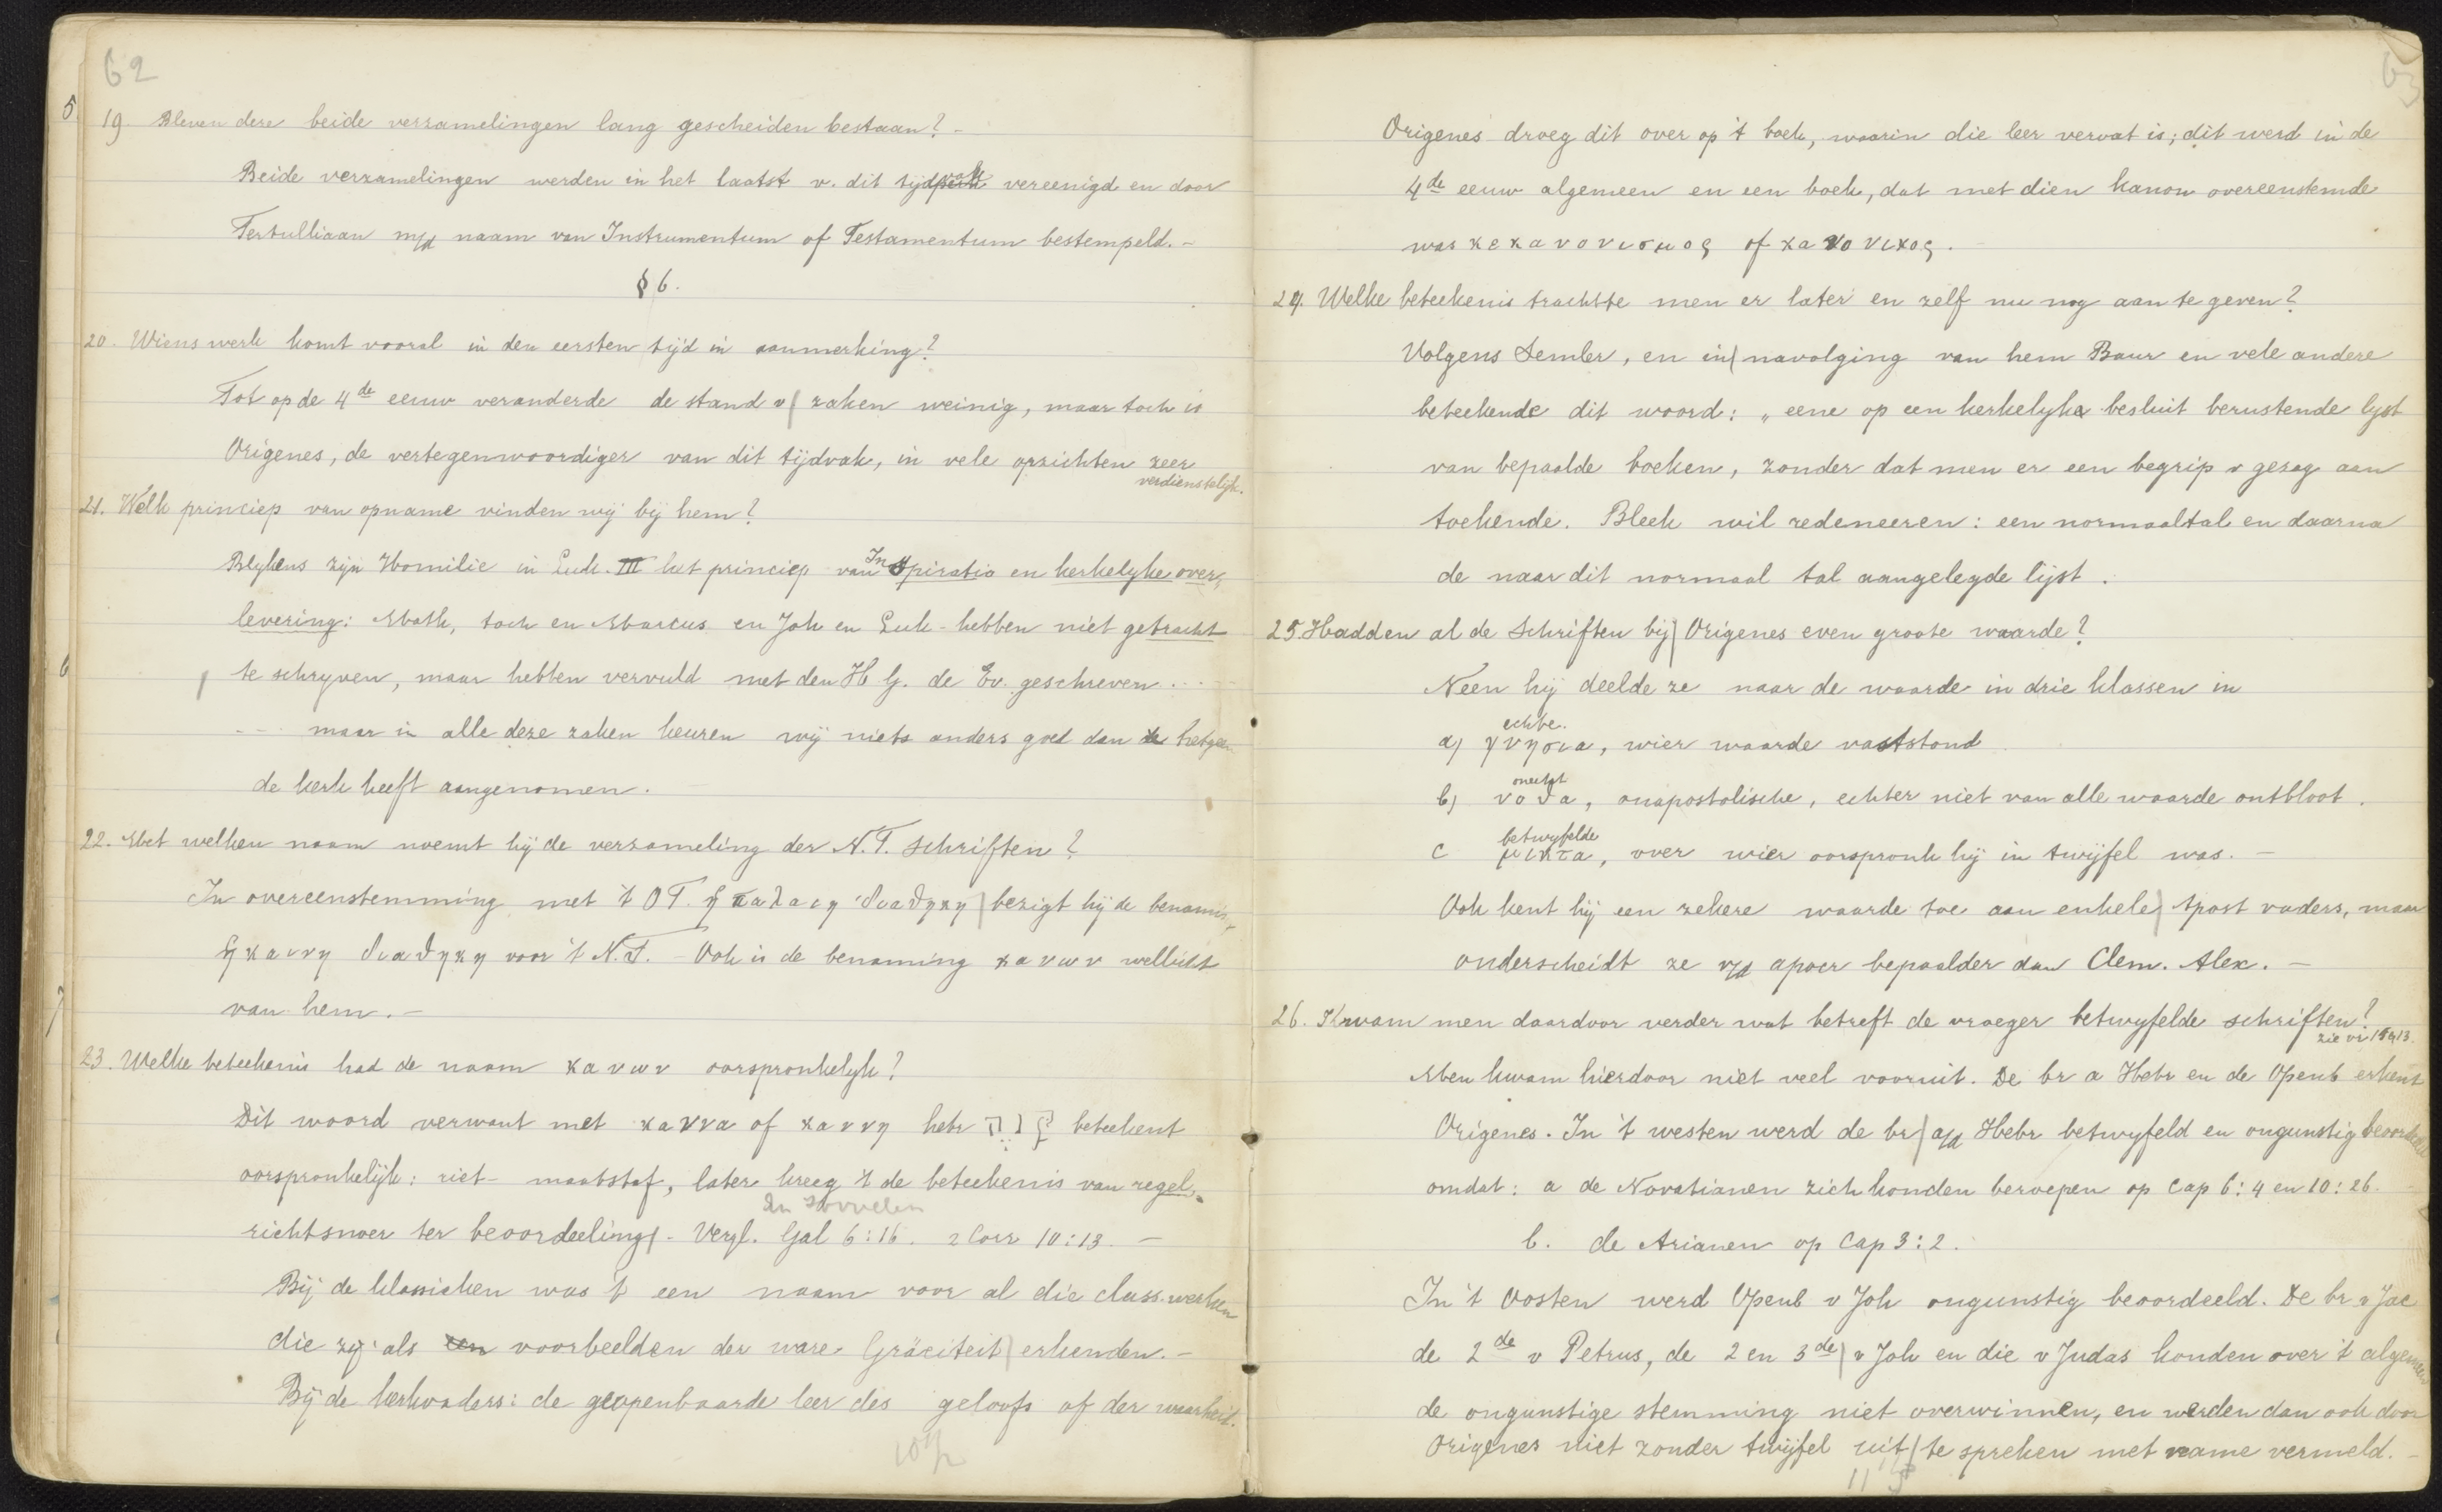 62
5. 19. Bleven deze beide verzamelingen lang gescheiden bestaan? -
Beide verzamelingen werden in het laatst v. dit tijdvak vereenigd en door
Tertulliaan m/d naam van Instrumentum of Testamentum bestempeld. -
§ 6.
20. Wiens werk komt vooral in den eersten tijd in aanmerking?
Tot op de 4de eeuw veranderde de stand v/ zaken weinig, maar toch is
Origenes, de vertegenwoordiger van dit tijdvak, in vele opzichten zeer
verdienstelijk.
21. Welk princiep van opname vinden wij bij hem?
Blykens zijn Homilie in Luk. III het princiep van Inspiratio en kerkelyke over,
levering: Math, toch en Marcus en Joh en Luk - hebben niet getracht
6 te schryven, maar hebben vervuld met den H G. de Ev. geschreven ...
-- maar in alle deze zaken keuren wij niets anders goed dan hetgeen
de kerk heeft aangenomen.
22. Met welken naam noemt hij de verzameling der N.T. schriften?
In overeenstemming met 't O T. ἡ παλαιη διαθηκη bezigt hij de benamin,
ἡ καινη διαθηκη voor 't N.T. - Ook is de benaming κανων wellicht
7 van hem. -
23. Welke beteekenis had de naam κανων oorspronkelyk?
Dit woord verwant met καννα of καννη hebr קנה beteekent
oorspronkelijk: riet- maatstaf, later kreeg 't de beteekenis van regel,
richtsnoer ter beoordeeling/. - Vergl. Gal 6:16. 2 Corr 10:13. -
Bij de klassieken was 't een naam voor al die class. werken
die zij als een voorbeelden der ware Gräciteit/ erkenden. -
Bij de kerkvaders: de geopenbaarde leer des geloofs of der waarheid.
63
Origenes droeg dit over op 't boek, waarin die leer vervat is; dit werd in de
4de eeuw algemeen en een boek, dat met dien kanon overeenstemde
was κεκανονισμος of κανονικος.
24. Welke beteekenis trachtte men er later en zelf nu nog aan te geven?
Volgens Semler, en in/ navolging van hem Baur en vele andere
beteekende dit woord: „eene op een kerkelyke besluit berustende lyst
van bepaalde boeken, zonder dat men er een begrip v gezag aan
toekende. Bleek wil redeneeren: een normaaltal en daarna
de naar dit normaal tal aangelegde lijst.
25. Hadden al de Schriften bij/ Origenes even groote waarde?
Neen hij deelde ze naar de waarde in drie klassen in
echte.
a) γνησια, wier waarde vaststond
onecht
b) νοθα, onapostolische, echter niet van alle waarde ontbloot.
betwyfelde
c μικτα, over wier oorspronk hij in twijfel was. -
Ook kent hij een zekere waarde toe aan enkele/ Apost vaders, maar
onderscheidt ze v/d apocr bepaalder dan Clem. Alex. -
26. Kwam men daardoor verder wat betreft de vroeger betwyfelde schriften?
Men kwam hierdoor niet veel vooruit. De br a Hebr en de Openb erkent
Origenes. In 't westen werd de br/ a/d Hebr betwyfeld en ongunstig beoordeeld
omdat: a de Novatianen zich konden beroepen op Cap 6:4 en 10:26.
b. de Arianen op Cap 3:2.
In 't Oosten werd Openb v Joh ongunstig beoordeeld. De br v Jac
de 2de v Petrus, de 2 en 3de/ v Joh en die v Judas konden over 't algemeen
de ongunstige stemming niet overwinnen, en werden dan ook door
Origenes niet zonder twijfel uit/ te spreken met name vermeld. -